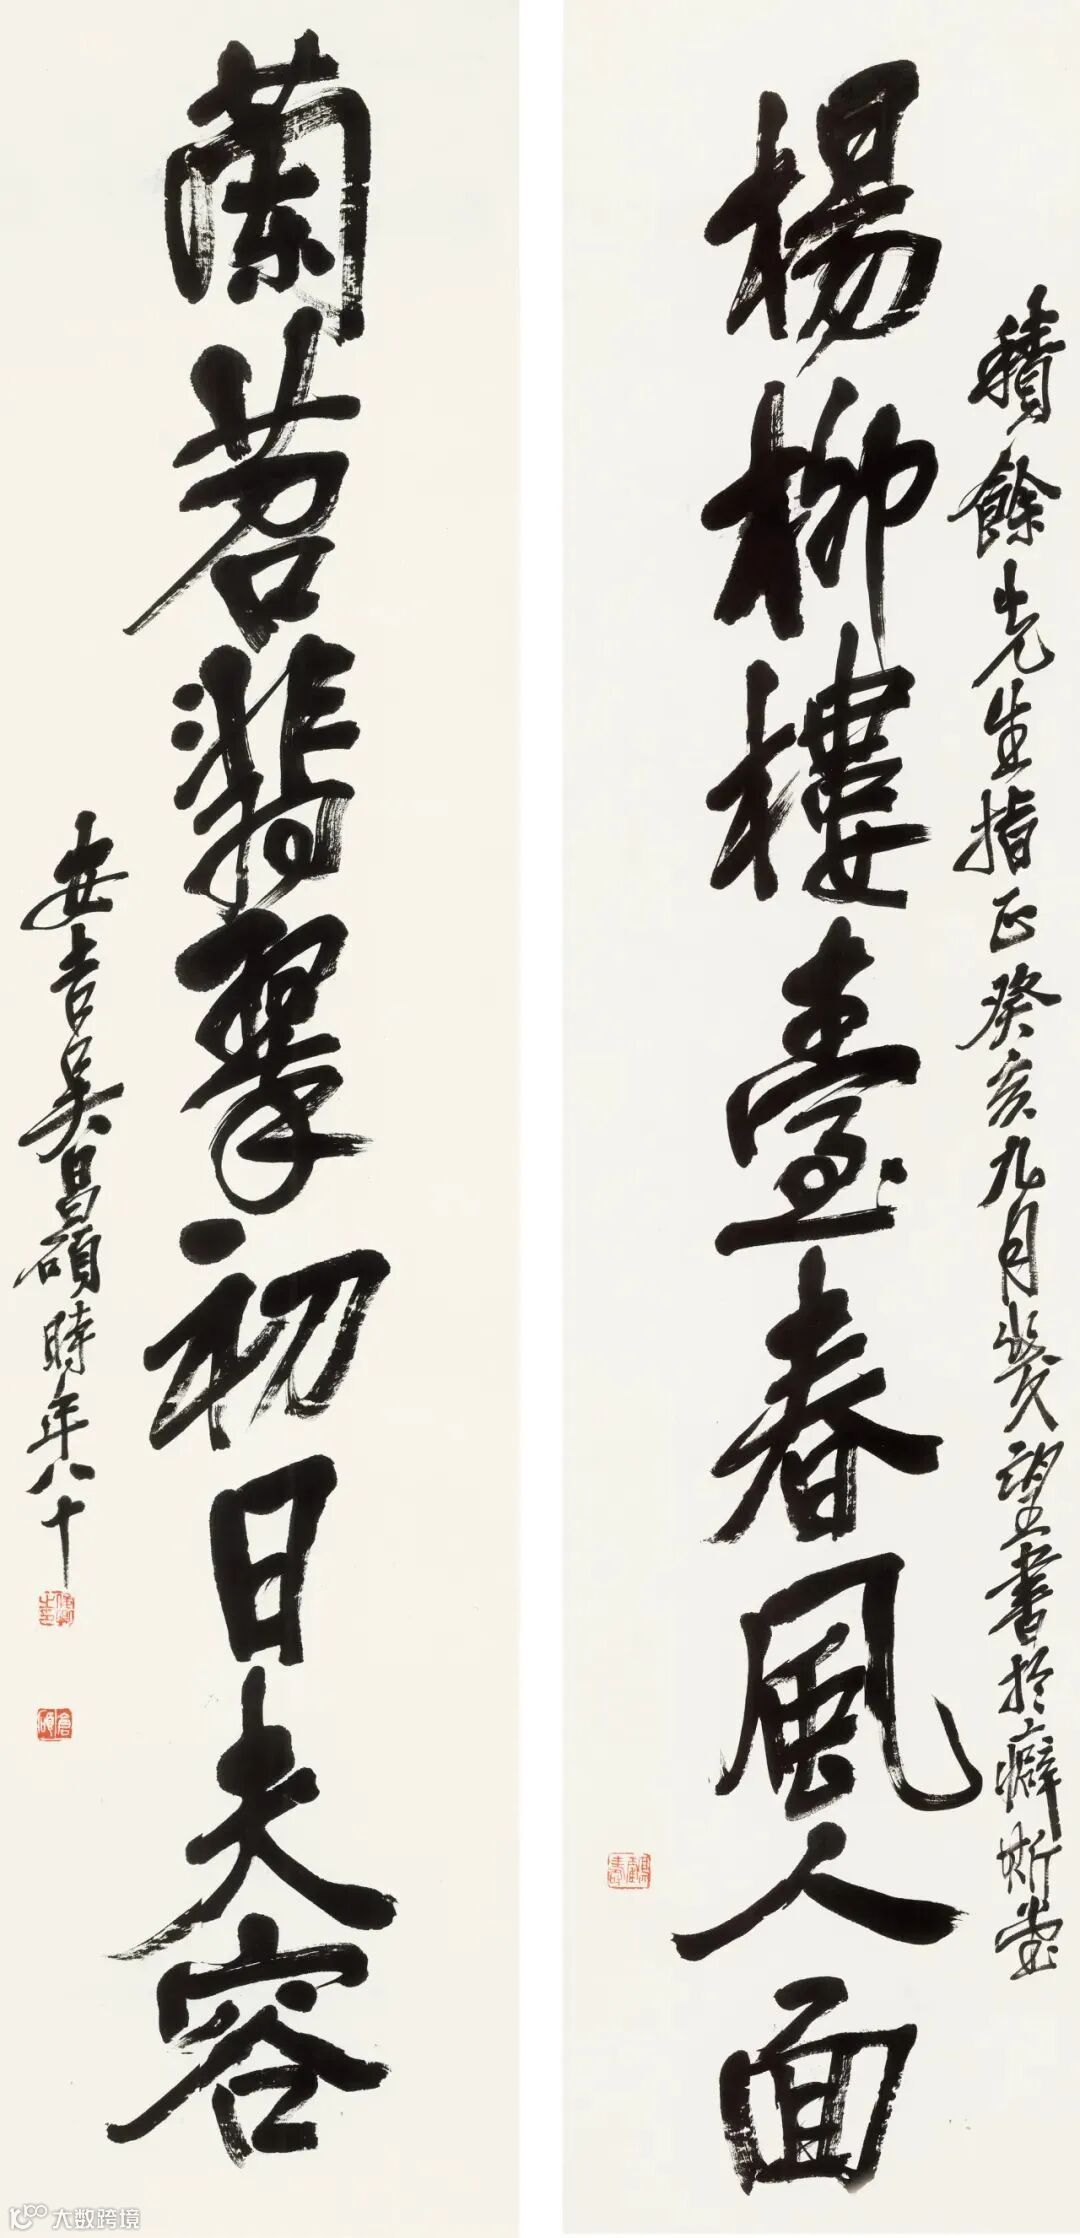 積餘先生指正癸亥九月幾望書於癖斯堂
楊柳樓臺春風人面
蘭苕翡翠初日夫容
安吉吳昌碩時年八十
俊卿之印
倉碩
大数跨境